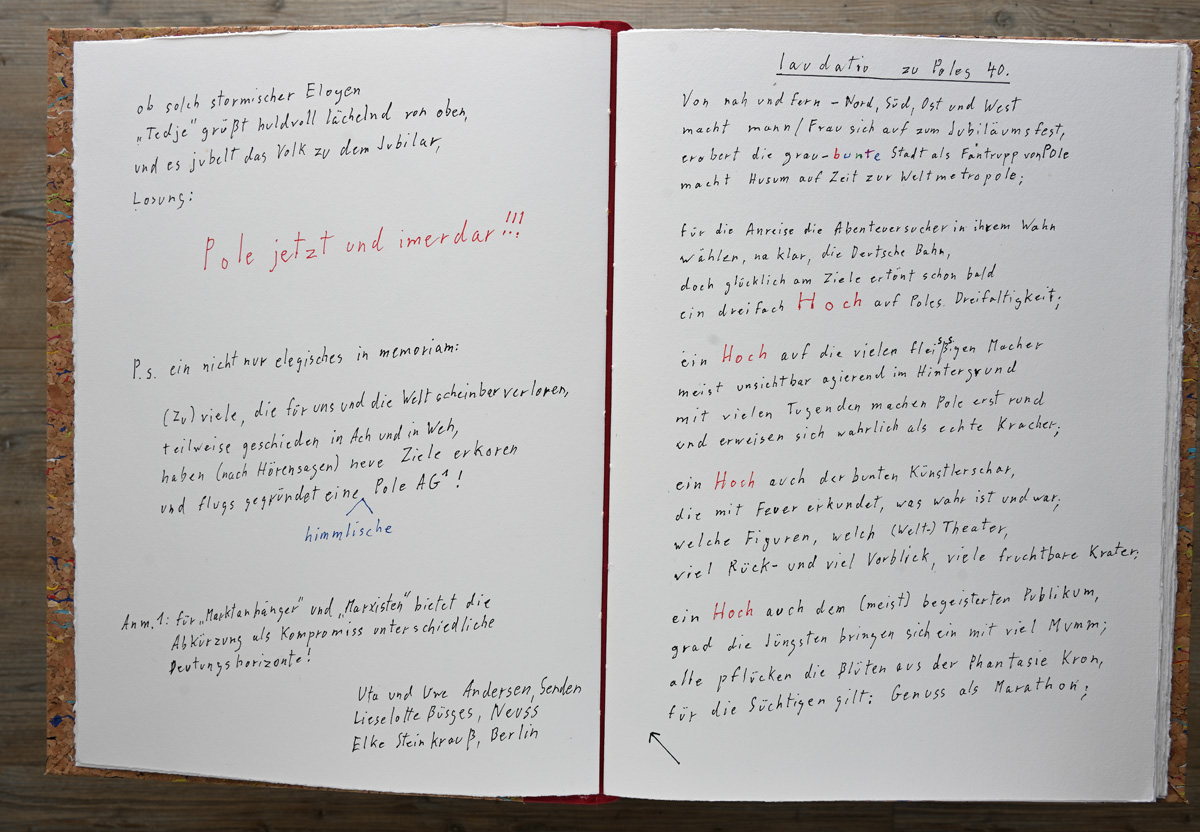 ob solch stormischer Elogen
„Tedje" grüßt huldvoll lächelnd von oben,
und es jubelt das Volk zu dem Jubilar,
Losung:
Pole jetzt und imerdar!!!
P.s. ein nicht nur elegisches in memoriam:
(zu) viele, die für uns und die Welt scheinbar verloren,
teilweise geschieden in Ach und in Weh,
haben (nach Hörensagen) neue Ziele erkoren
und flugs gegründet eine Pole AG¹!
himmlische
Anm.1: für „Marktanhänger" und „Marxisten" bietet die
Abkürzung als Kompromiss unterschiedliche
Deutungshorizonte!
Uta und Uwe Andersen, Senden
Lieselotte Büsges, Neuss
Elke Steinkrauß, Berlin
laudatio zu Poles 40.
Von nah und fern – Nord, Süd, Ost und West
macht mann/Frau sich auf zum Jubiläumsfest,
erobert die grau-bunte Stadt als Fantrupp von POle
macht Husum auf Zeit zur Weltmetropole;
für die Anreise die Abenteuersucher in ihrem Wahn
wählen, na klar, die Deutsche Bahn,
doch glücklich am Ziele ertönt schon bald
ein dreifach Hoch auf Poles Dreifaltigkeit;
ein Hoch auf die vielen fleißigen Macher
meist unsichtbar agierend im Hintergrund
mit vielen Tugenden machen Pole erst rund
und erweisen sich wahrlich als echte Kracher;
ein Hoch auch der bunten Künstlerschar,
die mit Feuer erkundet, was wahr ist und war;
welche Figuren, welch (Welt-) Theater,
viel Rück- und viel Vorblick, viele fruchtbare Krater;
ein Hoch auch dem (meist) begeisterten Publikum,
grad die Jüngsten bringen sich ein mit viel Mumm;
alle pflücken die Blüten aus der Phantasie Kron,
für die Süchtigen gilt: Genuss als Marathon;